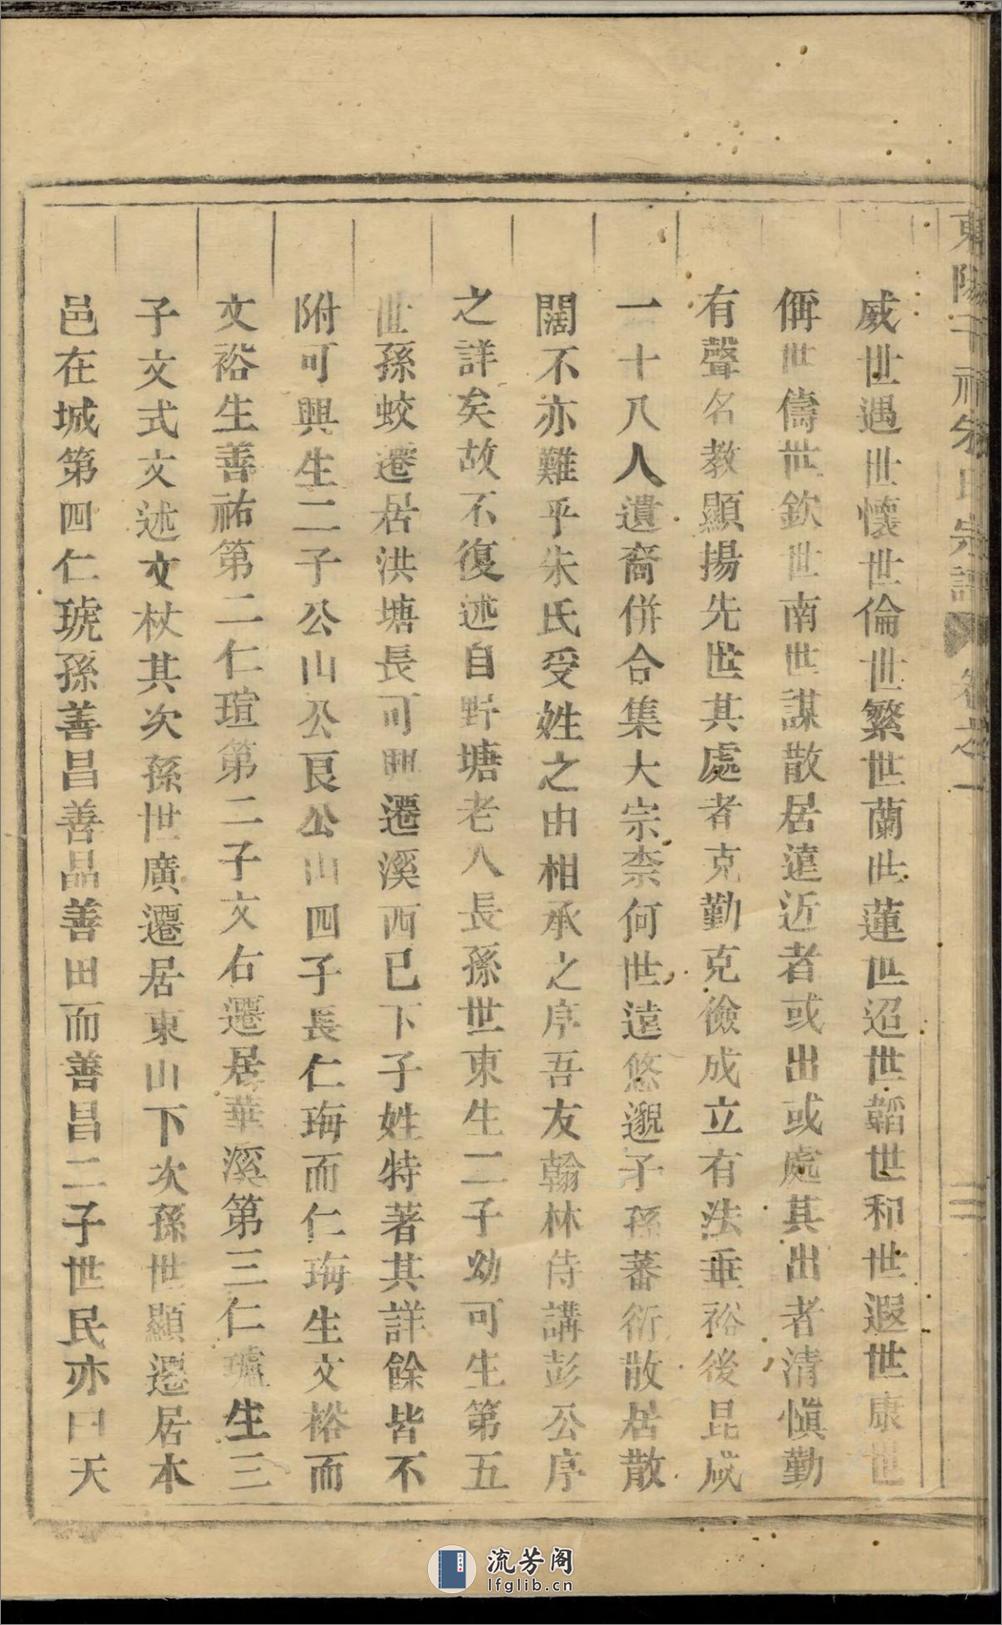 威世遇世懷世倫世繁世蘭世蓮世迢世韜世和世遐世康世
偁世儔世欽世南世謀散居遠近者或出或處其出者清慎勤
有聲名教顯揚先世其處者克勤克儉成立有法垂裕後昆咸
一十八人遺裔併合集大宗柰何世遠悠邈子孫蕃衍散居散
闊不亦難乎朱氏受姓之由相承之序吾友翰林侍講彭公序
之詳矣故不復述自野塘老人長孫世東生二子幼可生第五
世孫蛟遷居洪塘長可興遷溪西已下子姓特著其詳餘皆不
附可興生二子公山公艮公山四子長仁珻而仁珻生文裕而
文裕生善祐第二仁瑄第二子文右遷居華溪第三仁瓐生三
子文式文述文杖其次孫世廣遷居東山下次孫世顯遷居本
邑在城第四仁琥孫善昌善品善田而善昌二子世民亦曰天
流芳阁
lfglib.cn